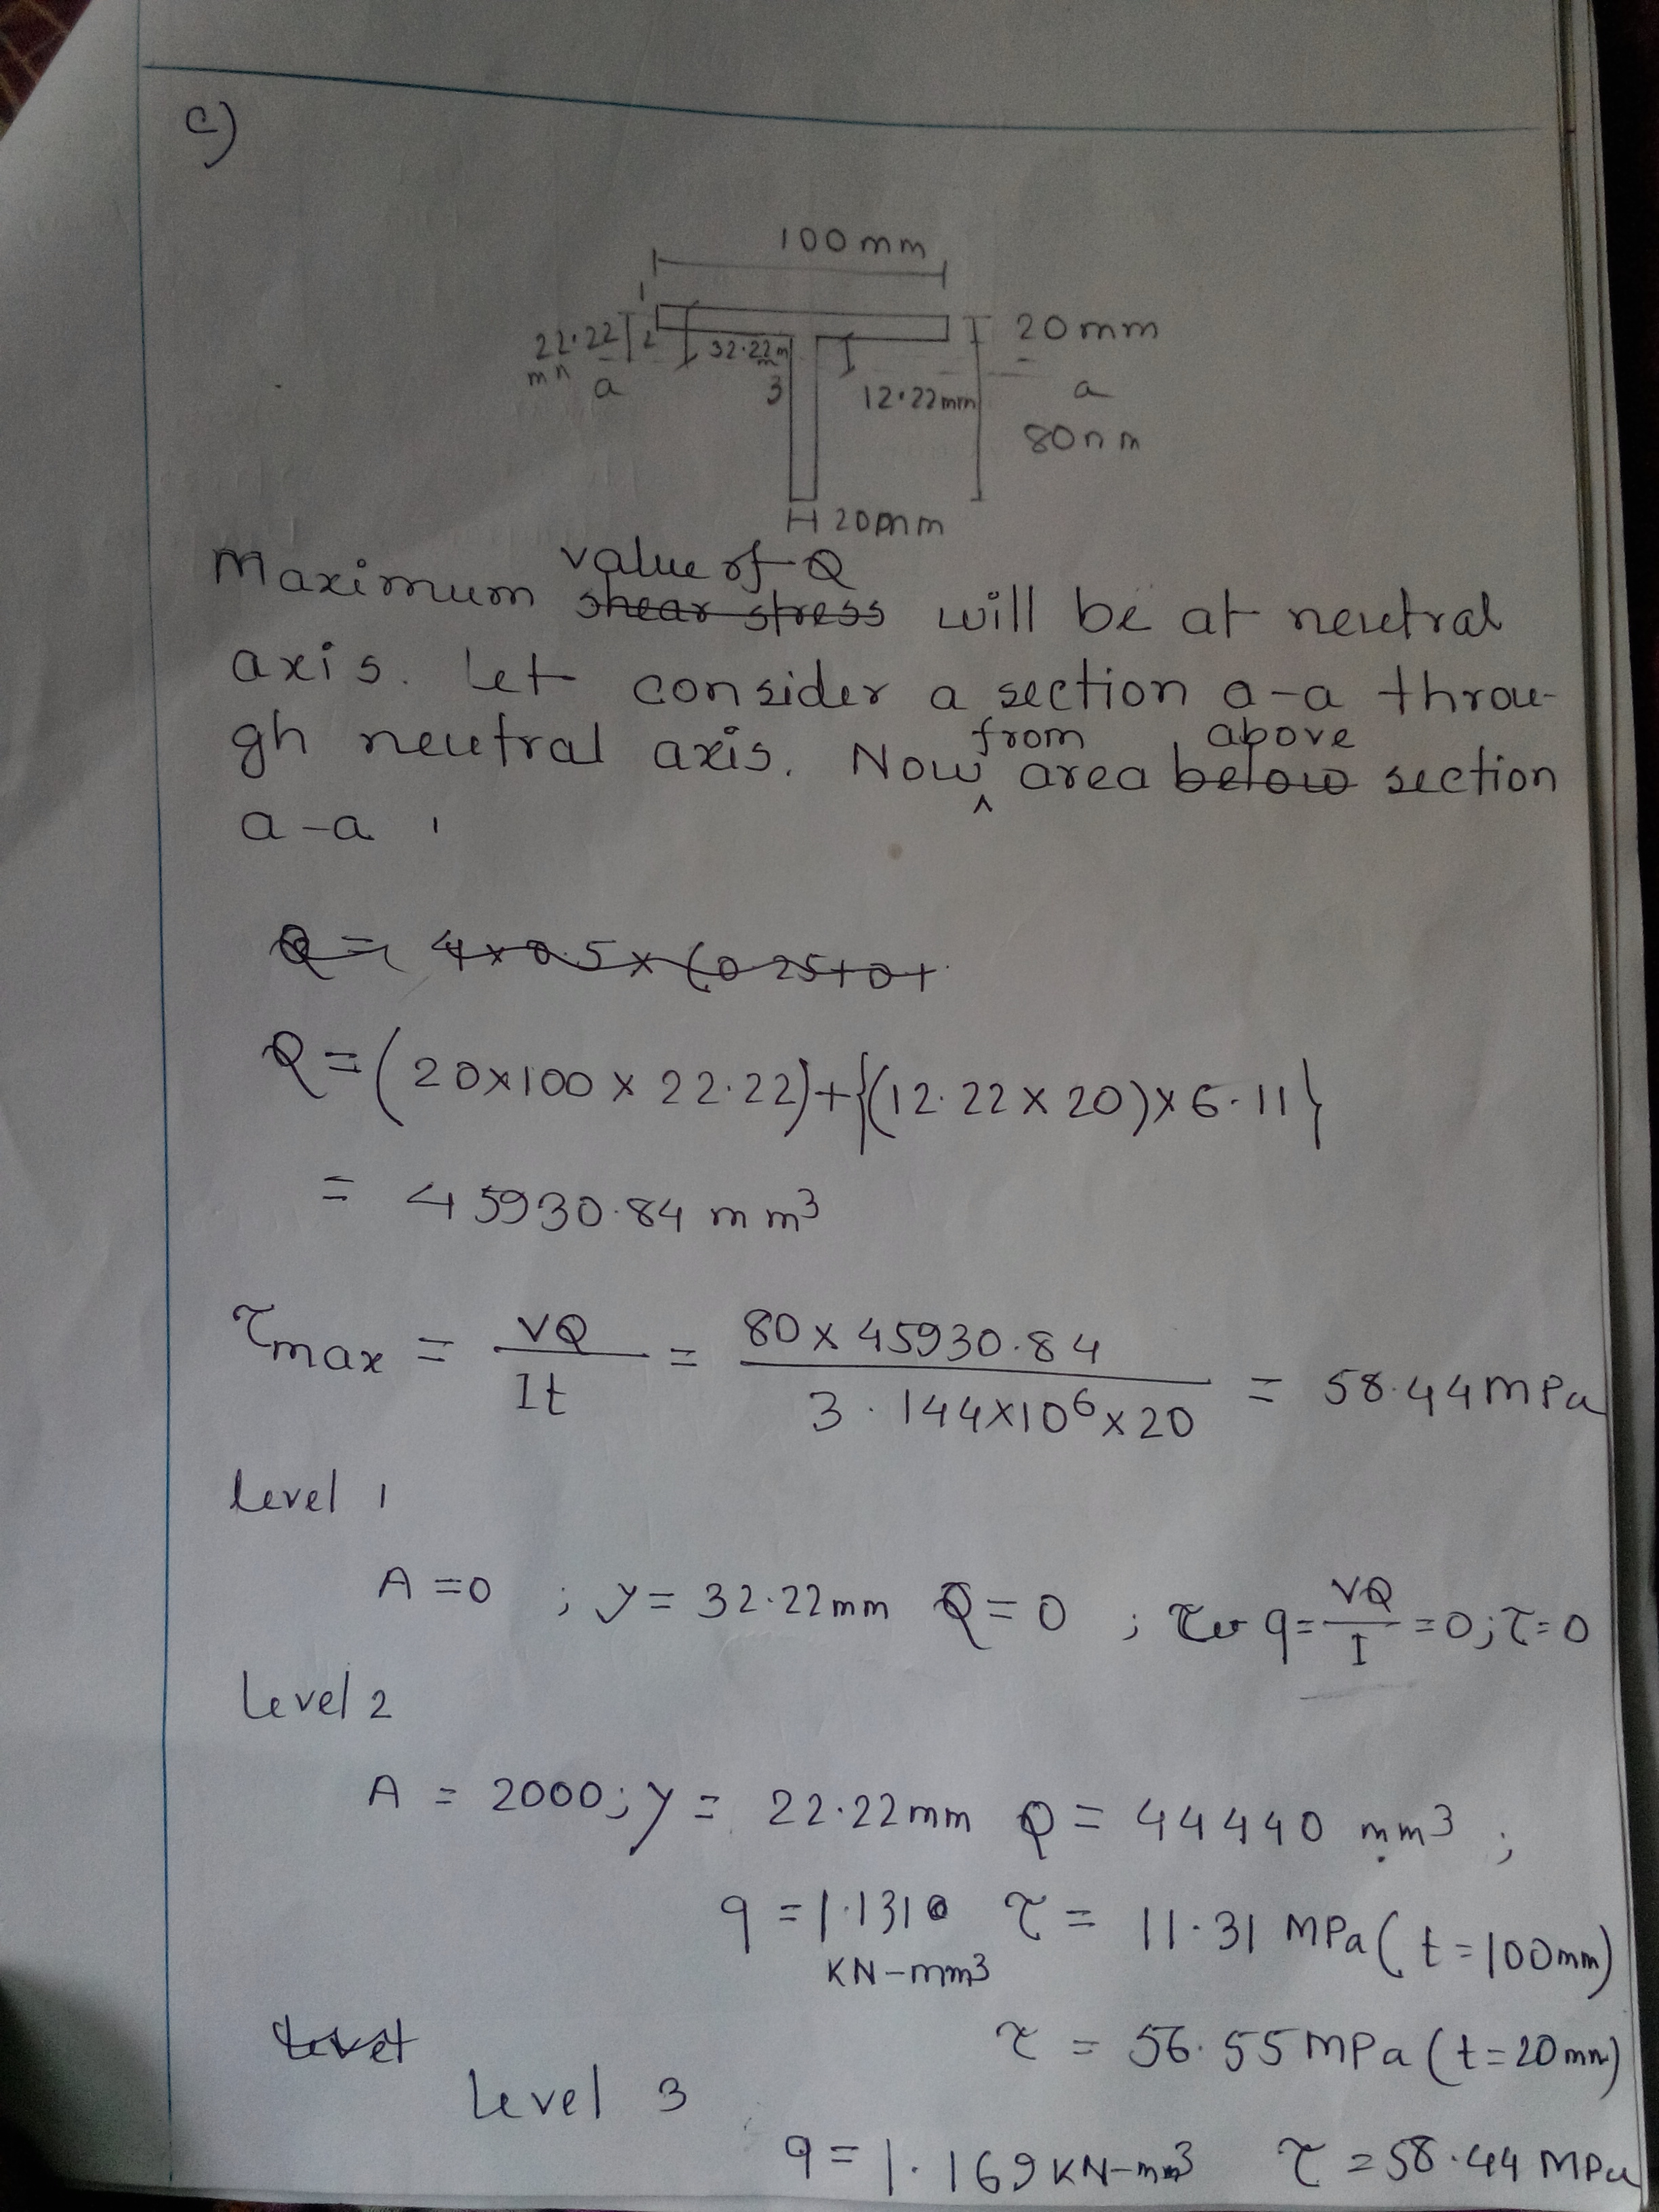 c)
100mm
1
22.22 mm
2
32.22mm
20mm
a
3
12.22mm
a
80mm
20mm
value of Q
Maximum shear stress will be at neutral
axis. Let consider a section a-a throu-
gh neutral axis. Now ^ from area below above section
a-a
Q = 4×0.5×(0.25+0+
Q = (20×100×22.22)+{(12.22×20)×6.11}
= 45930.84 mm³
τmax = VQ/It = 80×45930.84/3.144×10⁶×20 = 58.44 MPa
Level 1
A=0 ; y= 32.22mm Q=0 ; q=VQ/I=0; τ=0
Level 2
A = 2000; y = 22.22mm Q = 44440 mm³ ;
q = 1.131 KN-mm³ τ = 11.31 MPa (t=100mm)
τ = 56.55 MPa (t=20mm)
Level
Level 3
q = 1.169 KN-mm³ τ = 58.44 MPa